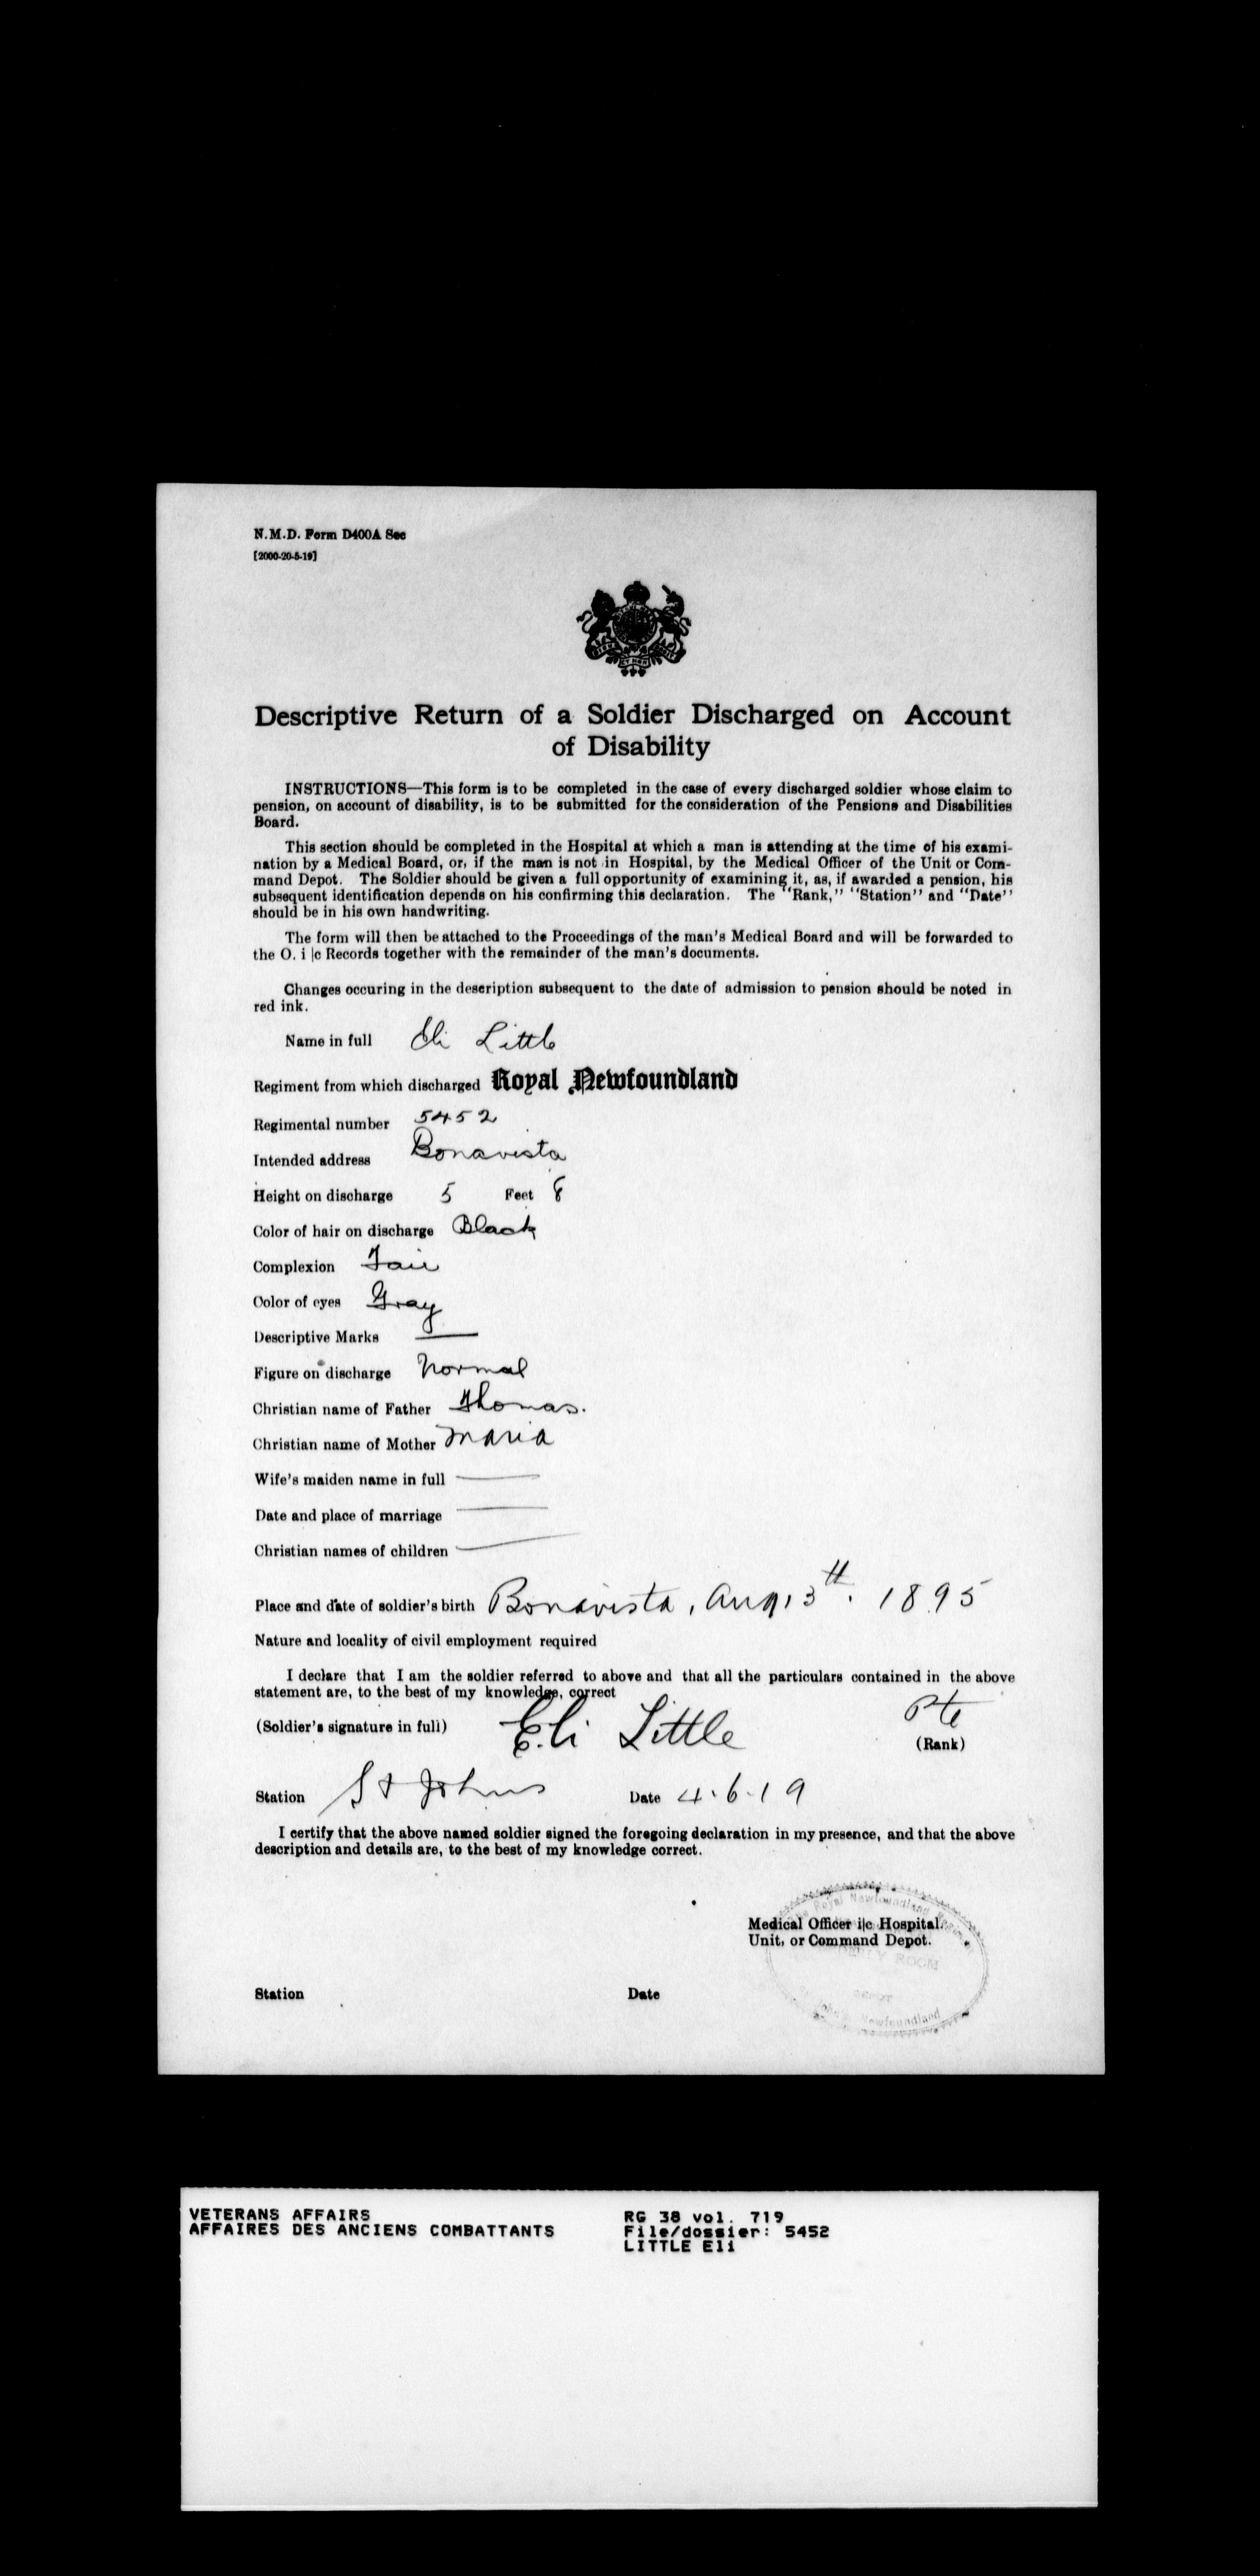 N.M.D. Form D400A Sec
[2000-20-5-19]
Descriptive Return of a Soldier Discharged on Account
of Disability
INSTRUCTIONS—This form is to be completed in the case of every discharged soldier whose claim to
pension, on account of disability, is to be submitted for the consideration of the Pensions and Disabilities
Board.
This section should be completed in the Hospital at which a man is attending at the time of his exami-
nation by a Medical Board, or, if the man is not in Hospital, by the Medical Officer of the Unit or Com-
mand Depot. The Soldier should be given a full opportunity of examining it, as, if awarded a pension, his
subsequent identification depends on his confirming this declaration. The "Rank," "Station" and "Date"
should be in his own handwriting.
The form will then be attached to the Proceedings of the man's Medical Board and will be forwarded to
the O. i |c Records together with the remainder of the man's documents.
Changes occuring in the description subsequent to the date of admission to pension should be noted in
red ink.
Name in full Eli Little
Regiment from which discharged Royal Newfoundland
Regimental number 5452
Intended address Bonavista
Height on discharge 5 Feet 8
Color of hair on discharge Black
Complexion Fair
Color of eyes Gray
Descriptive Marks —
Figure on discharge Normal
Christian name of Father Thomas.
Christian name of Mother Maria
Wife's maiden name in full —
Date and place of marriage —
Christian names of children —
Place and date of soldier's birth Bonavista, Aug 13th. 1895
Nature and locality of civil employment required
I declare that I am the soldier referred to above and that all the particulars contained in the above
statement are, to the best of my knowledge, correct
(Soldier's signature in full) Eli Little Pte
(Rank)
Station St Johns Date 4.6.19
I certify that the above named soldier signed the foregoing declaration in my presence, and that the above
description and details are, to the best of my knowledge correct.
Royal Newfoundland
Medical Officer i|c Hospital.
Unit, or Command Depot.
ROOM
Newfoundland
Station Date
VETERANS AFFAIRS RG 38 vol. 719
AFFAIRES DES ANCIENS COMBATTANTS File/dossier: 5452
LITTLE Eli